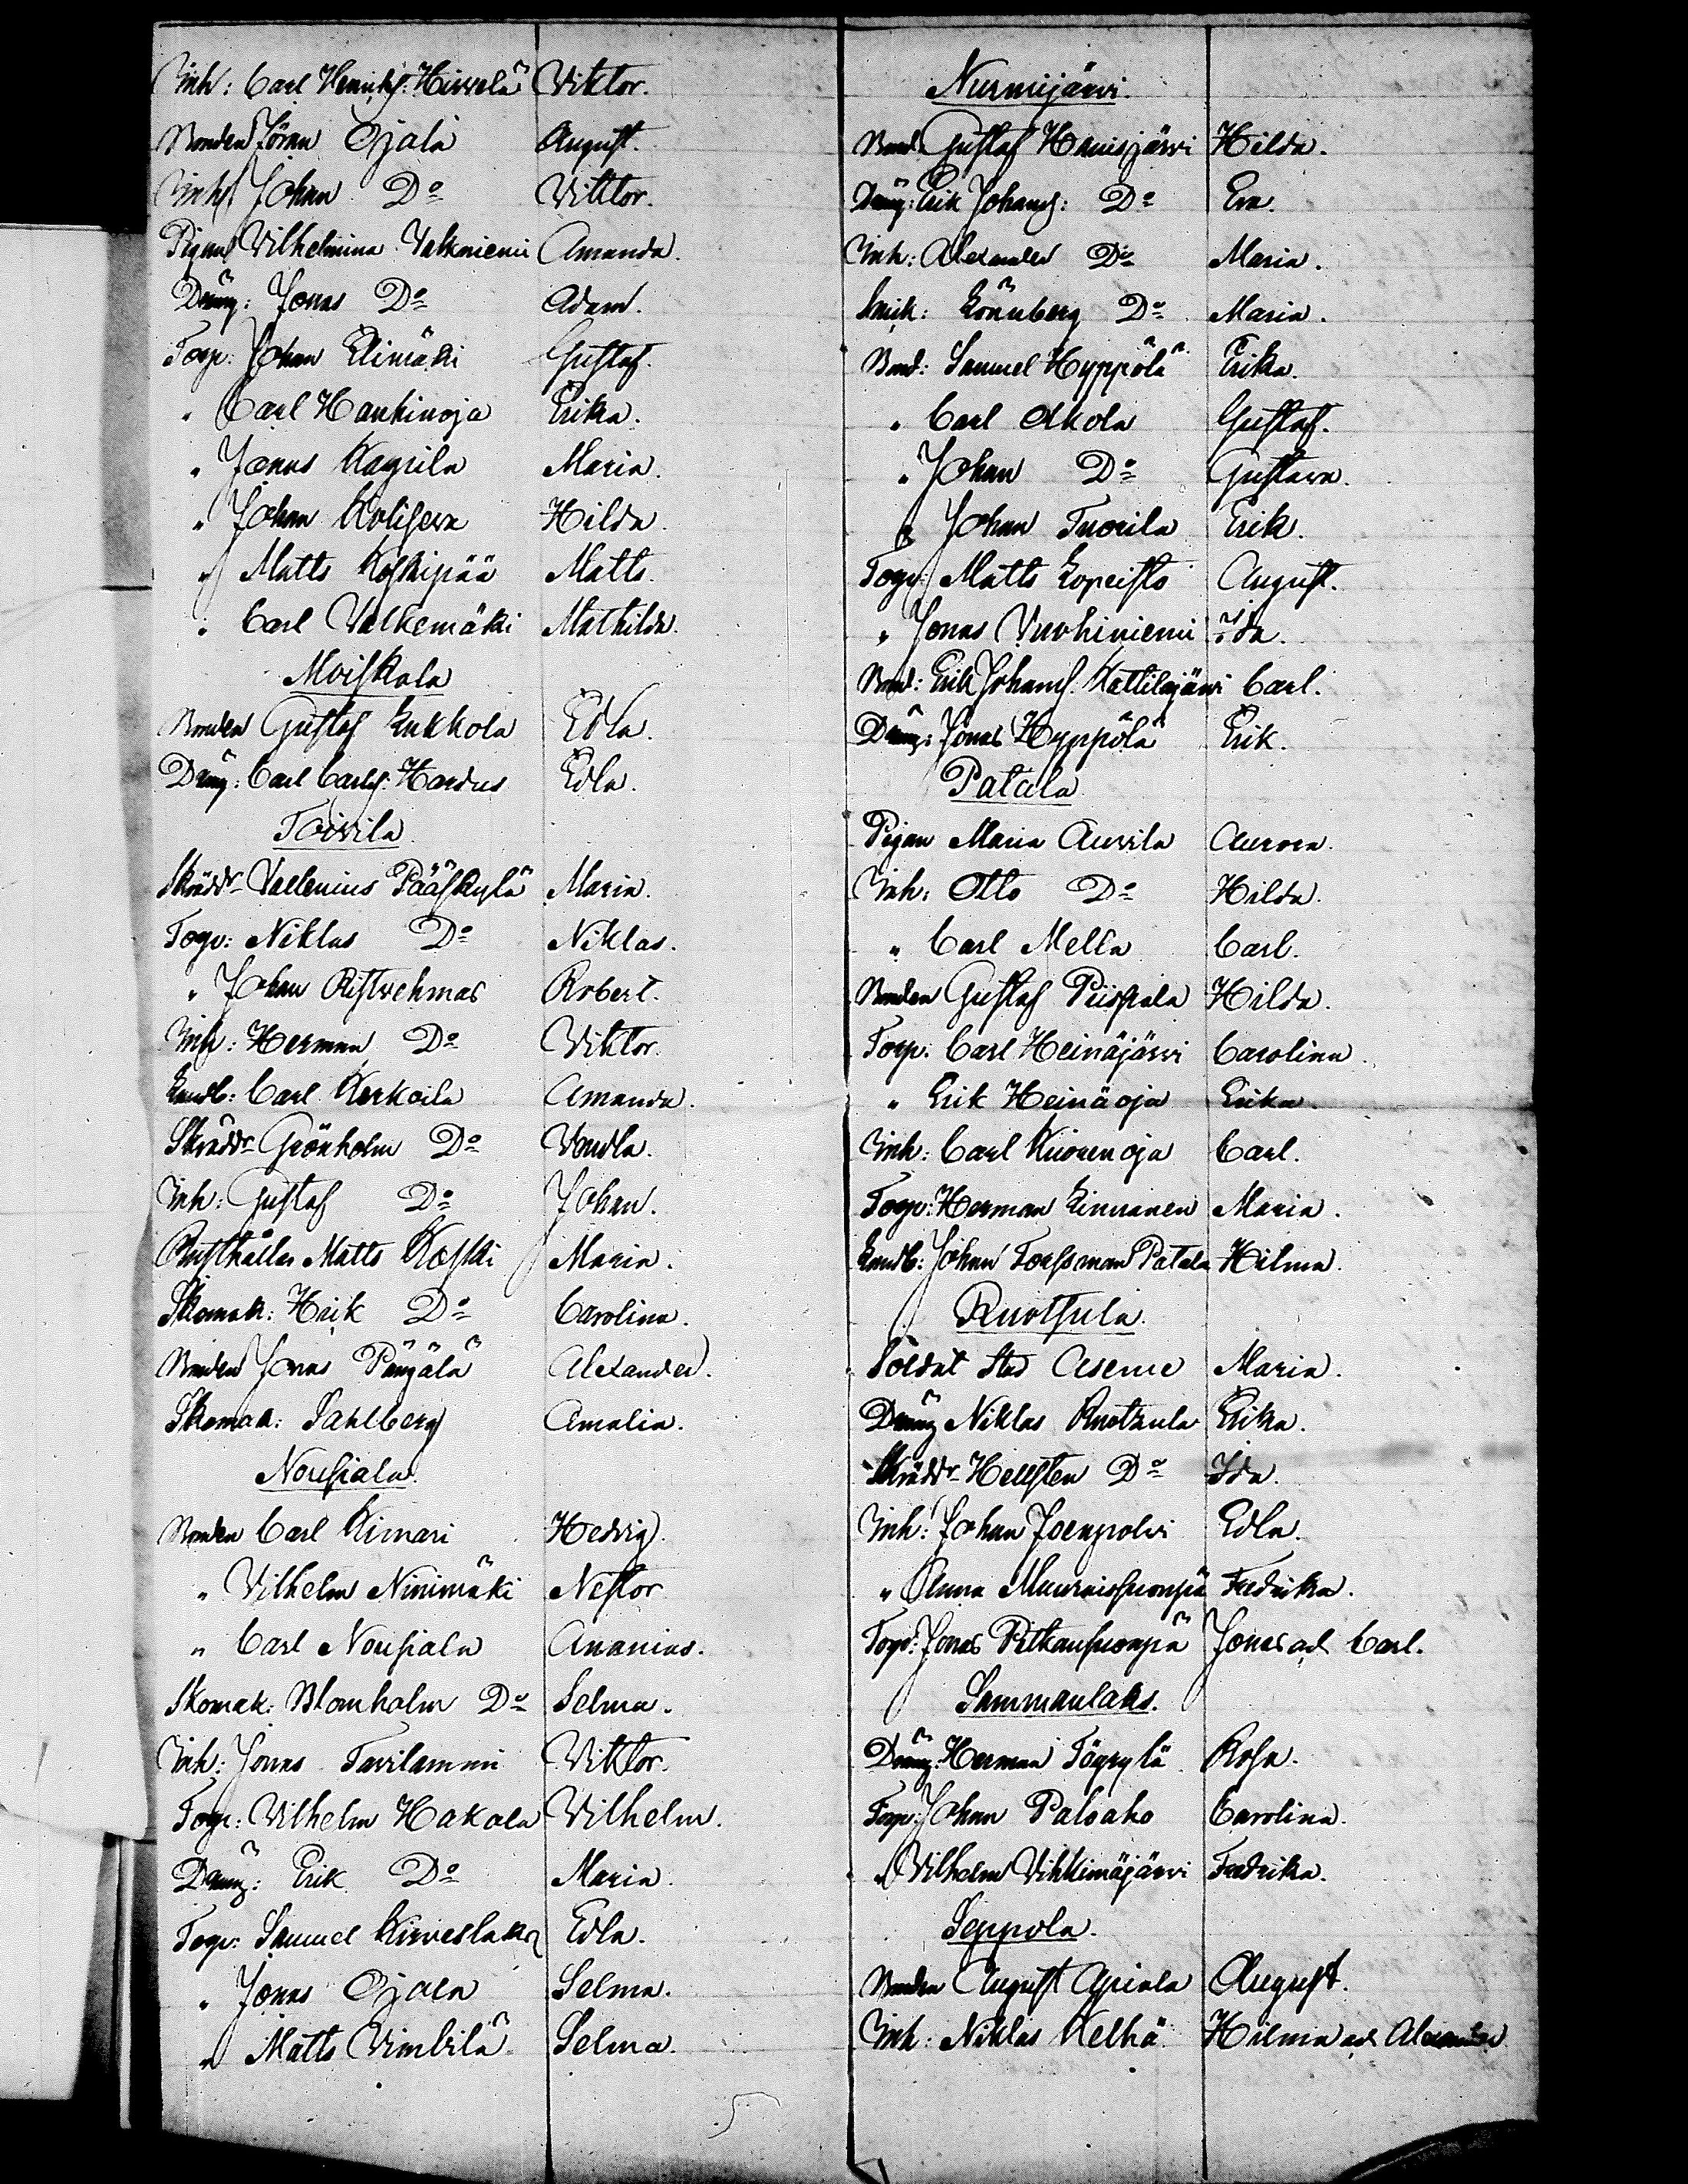 Inh: Carl Henriks: Hirvelä Viktor.
Bonden Jöran Ojala August.
Inh: Johan Do Viktor.
Pigan Vilhelmina Valkniemi Amanda.
Dräng: Jonas Do Adam.
Torp: Johan Elimäki Gustaf.
" Carl Hankinoja Erika.
" Jonas Kaprila Maria.
" Johan Koliseva Hilda.
" Matts Koskipää Matts.
" Carl Valkemäki Mathilda.
Moiskala
Bonden Gustaf Kukkola Edla.
Dräng: Carl Carls: Hardus Edla.
Toivila
Skräddr Vallenius Pääskylä Maria.
Torp: Niklas Do Niklas.
" Johan Ristvehmas Robert.
Inh: Herman Do Viktor.
Landb: Carl Kerkoila Amanda.
Skräddr Grönholm Do Vendla.
Inh: Gustaf Do Johan.
Rusthållar Matts Koski Maria.
Skomak: Henrik Do Carolina.
Bonden Jonas Pängälä Alexander.
Skomak: Sahlberg Amalia.
Nousiala
Bonden Carl Kimari Hedvig.
" Vilhelm Ninimäki Nestor
" Carl Nousiala Ananias.
Skomak: Blomholm Do Selma.
Inh: Jonas Tavilammi Viktor.
Torp: Vilhelm Hakala Vilhelm.
Dräng: Erik Do Maria.
Torp: Samuel Kirveslaks Edla.
" Jonas Ojala Selma.
" Matts Vimbilä Selma.
Nurmijärvi.
Bond: Gustaf Hanisjärvi Hilda.
Dräng: Erik Johans: Do Eva.
Inh: Alexander Do Maria.
Snick: Lönnberg Do Maria.
Bond: Samuel Hyppölä Erika.
" Carl Akola Gustaf.
" Johan Do Gustava.
" Johan Tuorila Erik.
Torp: Matts Lopeisto August.
" Jonas Vuohiniemi Ida.
Bond: Erik Johans: Kattilajärvi Carl.
Dräng: Jonas Hyppölä Erik.
Patala
Pigan Maria Aurila Aurora.
Inh: Otto Do Hilda.
" Carl Mella Carl.
Bonden Gustaf Piispala Hilda.
Torp: Carl Heinäjärvi Carolina.
" Erik Heinäoja Erika.
Inh: Carl Kuorenoja Carl.
Torp: Herman Linnanen Maria.
Landb: Johan Forssman Patala Hilma.
Ruotsula.
Soldat Aseme Maria.
Dräng Niklas Ruotzula Erika.
Skräddr Hellsten Do Ida.
Inh: Johan Joenpolvi Edla.
" Anna Fredrika.
Torp: Jonas Pitkansuonpä Jonas och Carl.
Sammaulaks.
Dräng: Herman Töyrylä Rosa.
Torp: Johan Paloaho Carolina.
" Vilhelm Vihkimäjärvi Fredrika.
Seppola.
Bonden August Apiala August.
Inh: Niklas Kelhä Hilma och Alexander